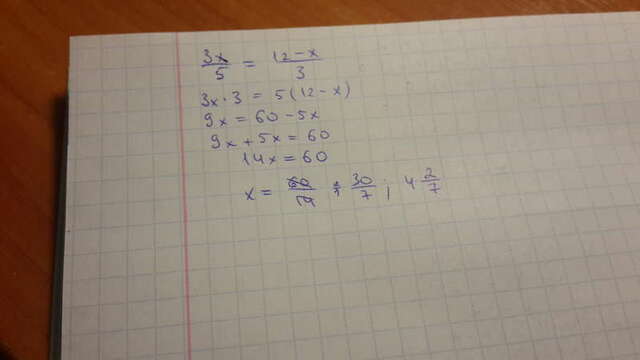 3x/5 = 12-x/3
3x·3 = 5(12-x)
9x = 60-5x
9x+5x = 60
14x = 60
x = 60/14 = 30/7 ; 4 2/7